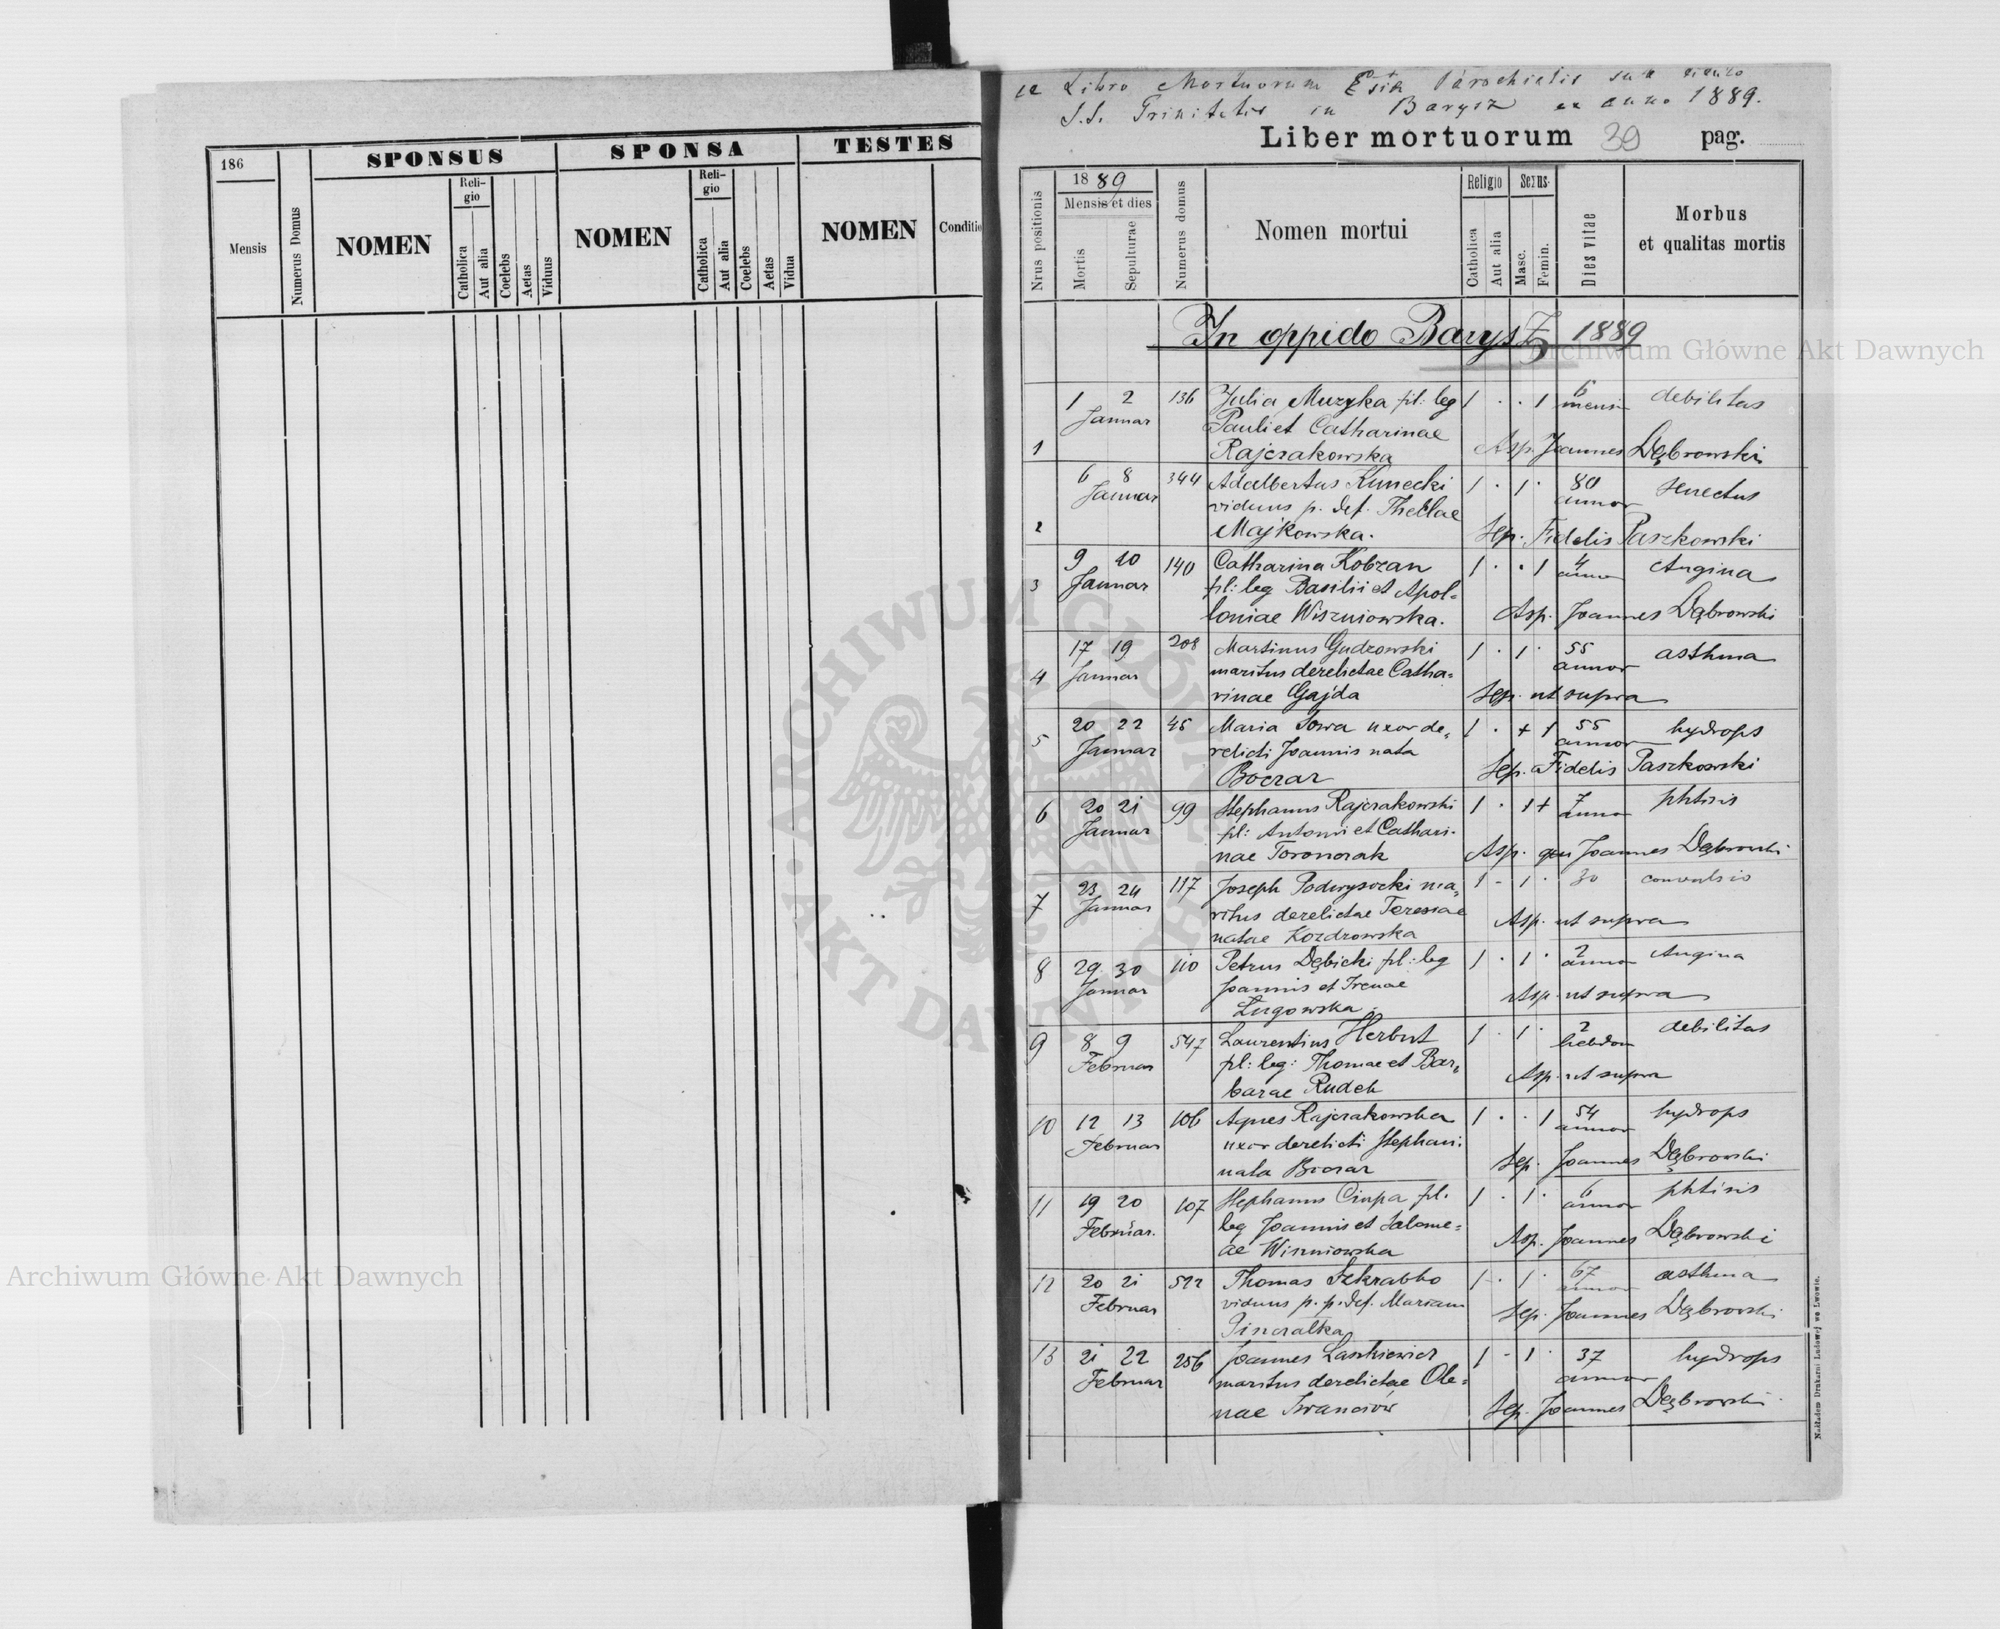 186
SPONSUS
SPONSA
TESTES
Mensis
Numerus Domus
NOMEN
Reli-
gio
Catholica
Aut alia
Coelebs
Aetas
Viduus
NOMEN
Reli-
gio
Catholica
Aut alia
Coelebs
Aetas
Vidua
NOMEN
Conditio
Libro Mortuorum Parochialis
S.S. Trinitatis in Barysz ex anno 1889.
Liber mortuorum 39 pag.
Nrus positionis
1889
Mensis et dies
Mortis
Sepulturae
Numerus domus
Nomen mortui
Religio
Catholica
Aut alia
Sexus
Masc.
Femin.
Dies vitae
Morbus
et qualitas mortis
In oppido Barysz 1889
1 2 136 Julia Muzyka fil: leg 1 . . 1 6 debilitas
Januar Pauli et Catharinae mensi
1 Rajczakowska Asp. Joannes Dąbrowski
6 8 344 Adalbertus Kunecki 1 . 1 . 80 senectus
Januar viduus p. def. Theklae annor
2 Majkowska. Sep. Fidelis Paszkowski
9 10 140 Catharina Kobzan 1 . . 1 4 Angina
3 Januar fil: leg Basilii et Apol= annor
loniae Wiszniowska. Asp. Joannes Dąbrowski
17 19 208 Martinus Gudzowski 1 . 1 . 55 asthma
4 Januar maritus derelictae Catha= annor
rinae Gajda Sep. ut supra
20 22 45 Maria Sowa uxor de= 1 . + 1 55 hydrops
5 Januar relicti Joannis nata annor
Boczar Sep. Fidelis Paszkowski
6 20 21 99 Stephanus Rajczakowski 1 . 1 + 7 phtisis
Januar fil: Antonii et Cathari- annor
nae Toronczak Asp. Joannes Dąbrowski
23 24 117 Joseph Podwysocki ma= 1 - 1 . 30 convulsio
7 Januar ritus derelictae Teresiae
natae Kozdrowska Asp. ut supra
8 29 30 110 Petrus Dębicki fil: leg 1 . 1 . 2 Angina
Januar Joannis et Irenae annor
Ługowska Asp. ut supra
9 8 9 547 Laurentius Herbut 1 . 1 . 2 debilitas
Februar fil: leg: Thomae et Bar= hebdom
barae Rudek Asp. ut supra
10 12 13 106 Agnes Rajczakowska 1 . . 1 54 hydrops
Februar uxor derelicti Stephani annor
nata Boczar Sep. Joannes Dąbrowski
11 19 20 107 Stephanus Ciupa fil. 1 . 1 . 6 phtisis
Februar. leg Joannis et Salome= annor
ae Wiszniowska Asp. Joannes Dąbrowski
12 20 21 522 Thomas Szkrabko 1 . 1 . 67 asthma
Februar viduus p. p. def. Mariam annor
Sep. Joannes Dąbrowski
13 21 22 256 Joannes Laszkiewicz 1 - 1 . 37 hydrops
Februar maritus derelictae Ole= annor
nae Iwanciów Sep. Joannes Dąbrowski
Nakładem Drukarni Ludowej we Lwowie.
Archiwum Główne Akt Dawnych
Archiwum Główne Akt Dawnych
ARCHIWUM GŁÓWNE AKT DAWNYCH